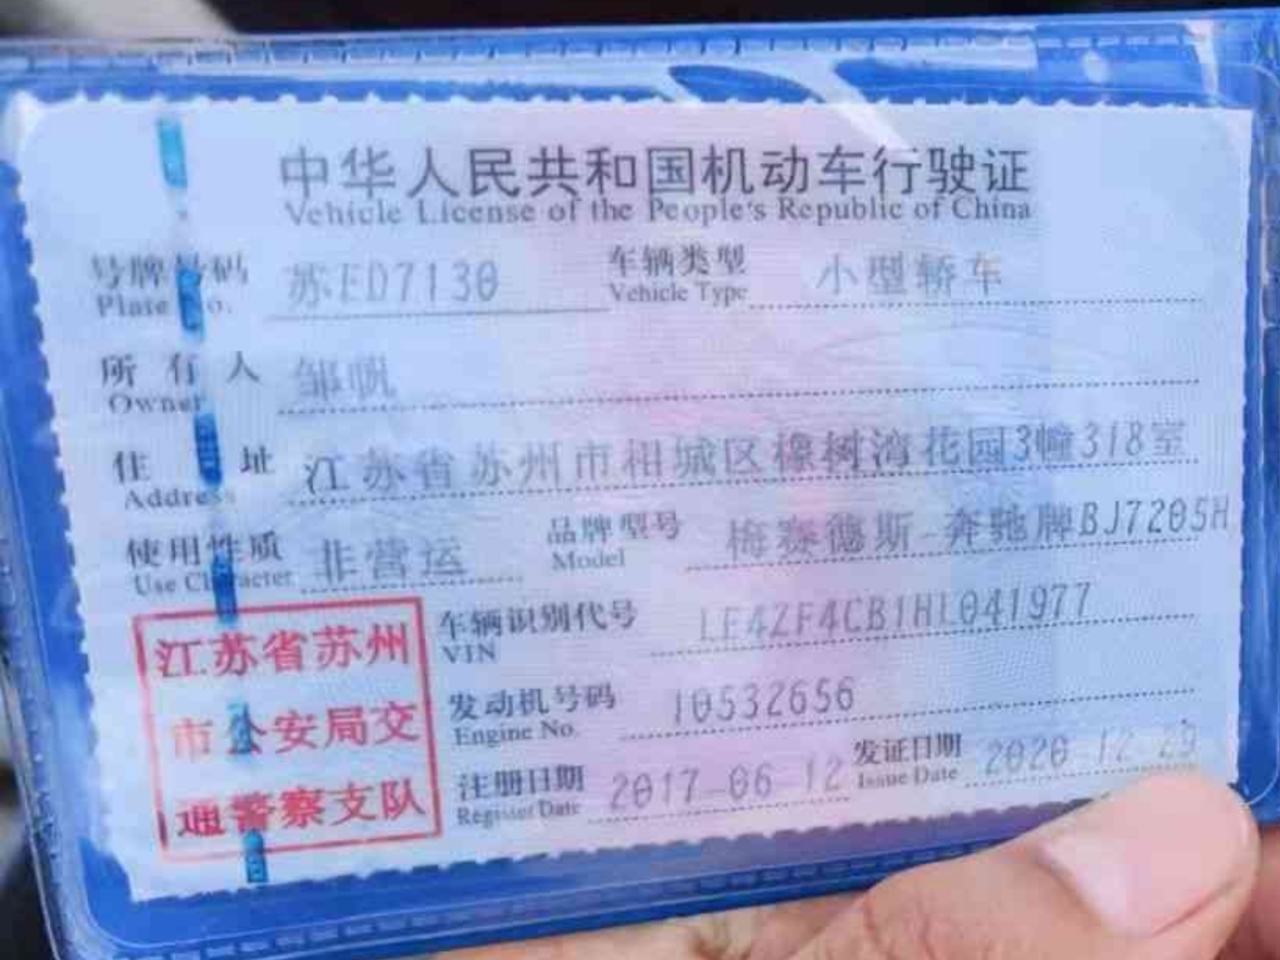 中华人民共和国机动车行驶证
Vehicle License of the People's Republic of China
号牌号码 苏ED7130 车辆类型 小型轿车
Plate No. Vehicle Type
所有人 邹帆
Owner
住址 江苏省苏州市相城区橡树湾花园3幢318室
Address
使用性质 非营运 品牌型号 梅赛德斯-奔驰牌BJ7205H
Use Character Model
江苏省苏州 车辆识别代号 LE4ZF4CB1HL041977
VIN
市公安局交 发动机号码 10532656
Engine No.
通警察支队 注册日期 2017-06-12 发证日期 2020-12-29
Register Date Issue Date